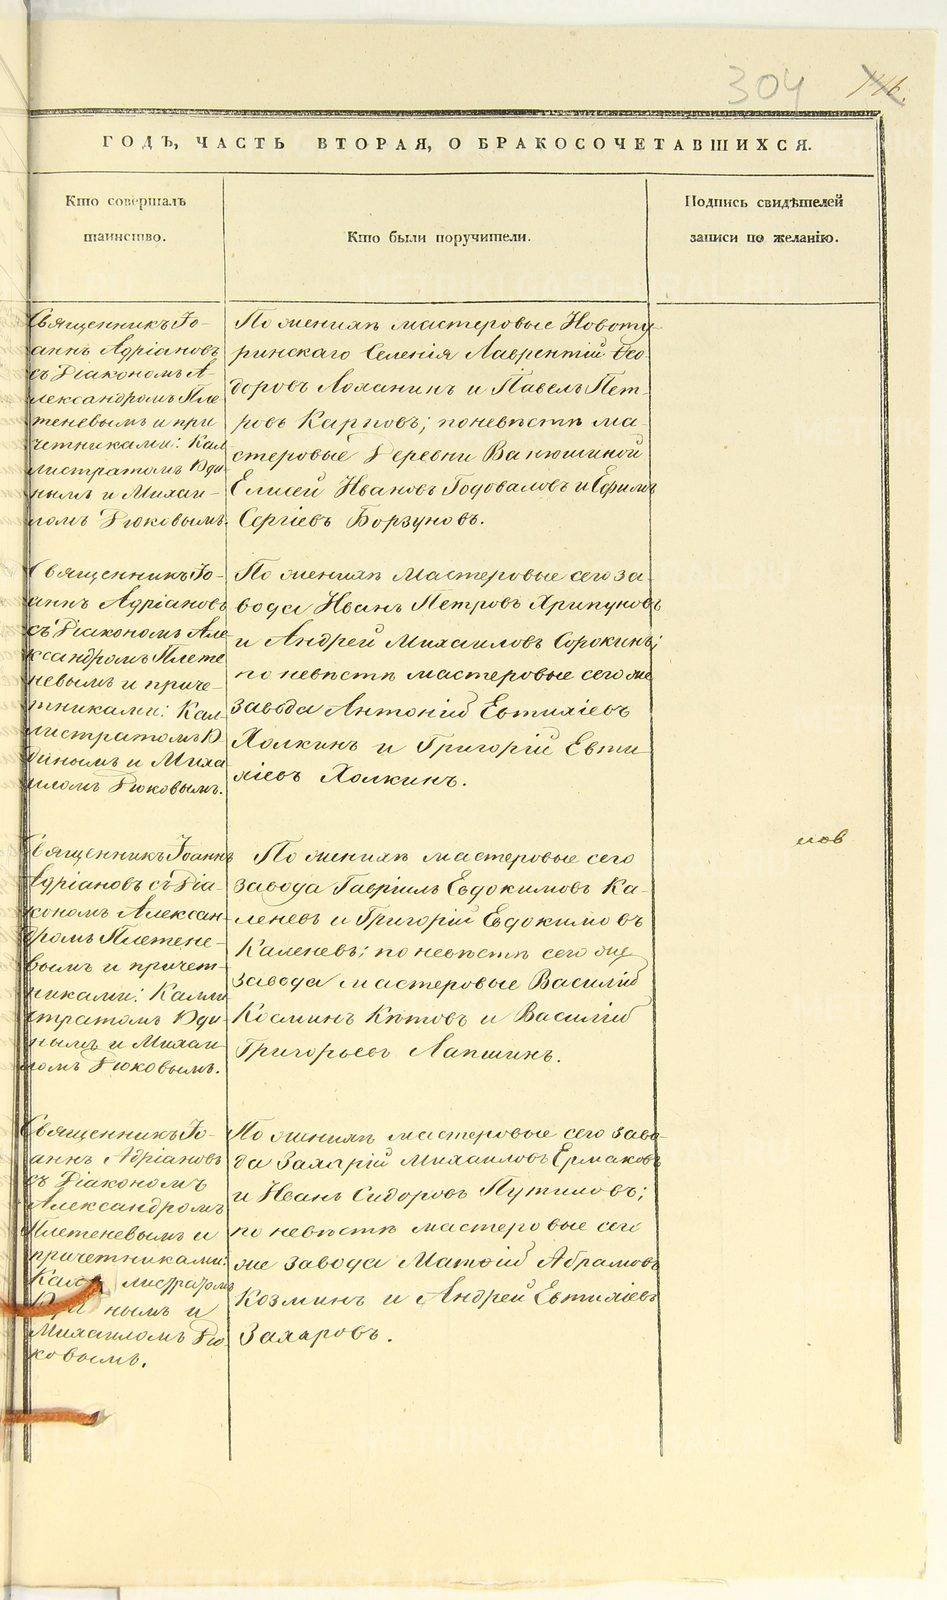 304
116.
ГОДЪ, ЧАСТЬ ВТОРАЯ, О БРАКОСОЧЕТАВШИХСЯ.
Кто совершалъ
таинство.
Кто были поручители.
Подпись свидѣтелей
записи по желанію.
Священникъ Іо-
аннъ Адріановъ
съ Діакономъ А-
лександромъ Пле
теневымъ и при
четниками: Кал
листратомъ Юди
нымъ и Михаи-
ломъ Дюковымъ.
По женихѣ мастеровые Новоту-
ринскаго Селенія Лаврентій Ѳео-
доровъ Лоханинъ и Павелъ Пет-
ровъ Карповъ; по невѣстѣ ма-
стеровые Деревни Ванюшиной
Елисей Ивановъ Годоваловъ и Ефимъ
Сергіевъ Борзуновъ.
Священникъ Іо-
аннъ Адріановъ
съ Діакономъ Але
ксандромъ Плете
невымъ и приче-
тниками: Кал-
листратомъ Ю
динымъ и Миха
иломъ Дюковымъ.
По женихѣ мастеровые сего за-
вода Иванъ Петровъ Хрипуновъ
и Андрей Михаиловъ Сорокинъ;
по невѣстѣ мастеровые сего же
завода Антоній Евтихіевъ
Холкинъ и Григорій Евти
хіевъ Холкинъ.
Священникъ Іоаннъ
Адріановъ съ Діа-
кономъ Алексан-
дромъ Плетене-
вымъ и причет-
никами: Калли
стратомъ Юди-
нымъ и Михаи-
ломъ Дюковымъ.
По женихѣ мастеровые сего
завода Гавріилъ Евдокимовъ Ка-
леневъ и Григорій Евдокимовъ
Каленевъ; по невѣстѣ сего же
завода мастеровые Василій
Косминъ Кѣтовъ и Василій
Григорьевъ Лапшинъ.
мов
Священникъ Іо-
аннъ Адріановъ
съ Діакономъ
Александромъ
Плетеневымъ и
причетниками:
Кал листратомъ
Юди нымъ и
Михаиломъ Дю-
ковымъ.
По женихѣ мастеровые сего заво-
да Захарій Михаиловъ Ермаковъ
и Иванъ Сидоровъ Путиловъ;
по невѣстѣ мастеровые сего
же завода Матѳій Абрамовъ
Козминъ и Андрей Евтихіевъ
Захаровъ.